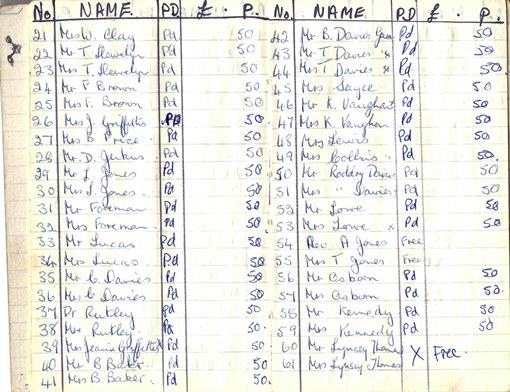 No. NAME PD £ . P.
21 Mrs W. Clay Pd 50
22 Mr T Llewelyn Pd 50
23 Mrs T. Llewelyn Pd 50
24 Mr F Brown Pd 50
25 Mrs F. Brown Pd 50.
26 Mrs J Griffiths PD 50.
27 Mrs B Price Pd 50.
28 Mr. D. Jenkins Pd 50
29 Mr L Jones Pd 50.
30 Mrs L Jones Pd 50.
31 Mr Foreman Pd 50.
32 Mrs Foreman Pd 50.
33 Mr Lucas Pd 50.
34 Mrs Lucas Pd 50.
35 Mr C Davies Pd 50
36 Mrs C Davies Pd 50.
37 Dr Rutley Pd 50
38 Mrs Rutley Pd 50.
39 Mrs Jeanie Griffiths X Pd 50.
40 Mr B Baker. Pd 50.
41 Mrs B Baker. Pd 50.
No. NAME PD £ . P.
42 Mr B. Davies Pd 50
43 Mr T Davies x Pd 50
44 Mrs T Davies x Pd 50
45 Mrs Sayce Pd 50
46 Mr K. Vaughan Pd 50
47 Mrs K. Vaughan Pd 50
48 Mrs Lewis Pd 50
49 Mrs Collins Pd 50.
50 Mr Roddy Davies Pd 50
51 Mrs " Davies Pd 50
52 Mr Lowe Pd 50
53 Mrs Lowe x Pd 50
54 Rev. A Jones Free
55 Mrs T Jones Free
56 Mr Osborn Pd 50
57 Mrs Osborn Pd 50.
58 Mr Kennedy Pd 50
59 Mrs Kennedy Pd 50
60 Mr Lynsey Thomas
61 Mrs Lynsey Thomas X Free.